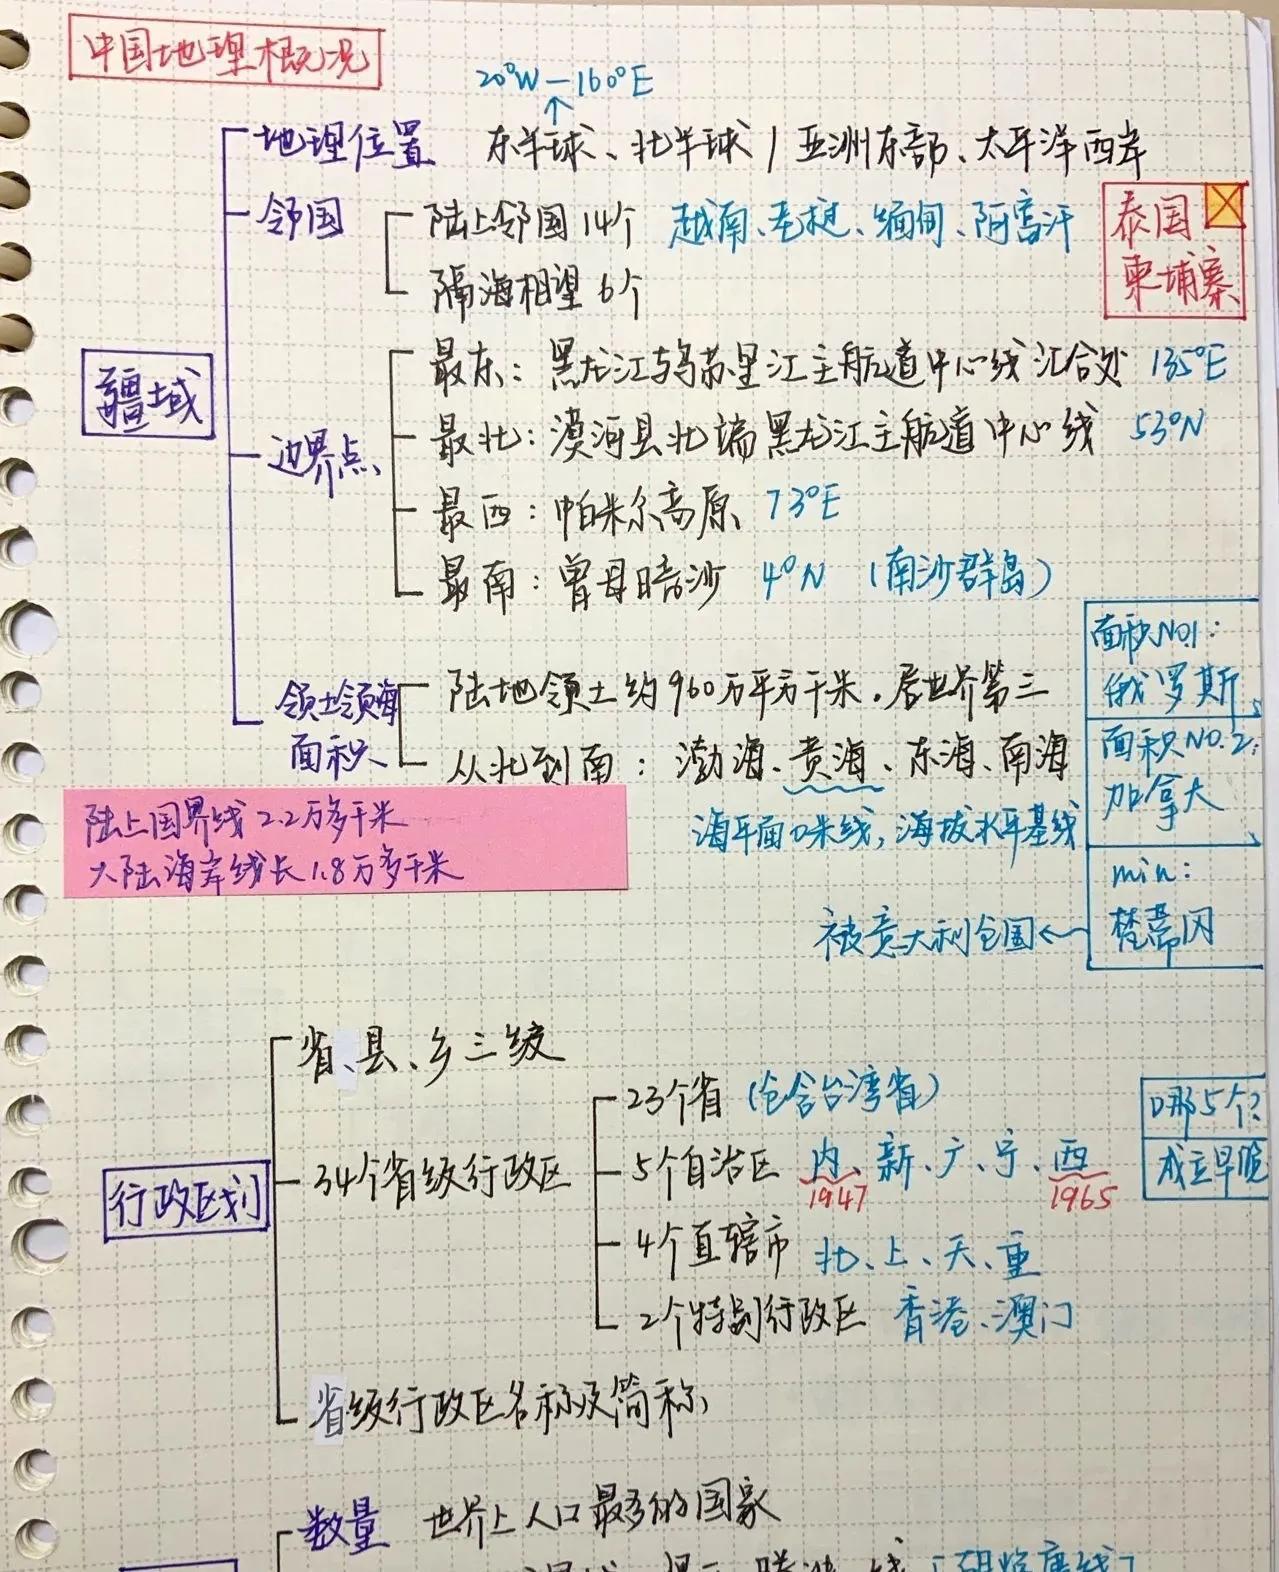 中国地理概况
20°W—160°E
地理位置 东半球、北半球 / 亚洲东部、太平洋西岸
邻国 陆上邻国14个 越南、老挝、缅甸、阿富汗
泰国
柬埔寨
隔海相望6个
疆域
边界点
最东：黑龙江与乌苏里江主航道中心线汇合处 135°E
最北：漠河县北端黑龙江主航道中心线 53°N
最西：帕米尔高原 73°E
最南：曾母暗沙 4°N （南沙群岛）
领土领海
面积
陆地领土约960万平方千米，居世界第三
从北到南：渤海、黄海、东海、南海
海平面0米线，海拔水平基线
面积NO.1：
俄罗斯
面积NO.2：
加拿大
min：
梵蒂冈
被意大利包围
陆上国界线2.2万多千米
大陆海岸线长1.8万多千米
行政区划
省、县、乡三级
34个省级行政区
23个省（包含台湾省）
5个自治区 内、新、广、宁、西
1947 1965
哪5个？
成立早晚
4个直辖市 北、上、天、重
2个特别行政区 香港、澳门
省级行政区名称及简称
数量 世界上人口最多的国家